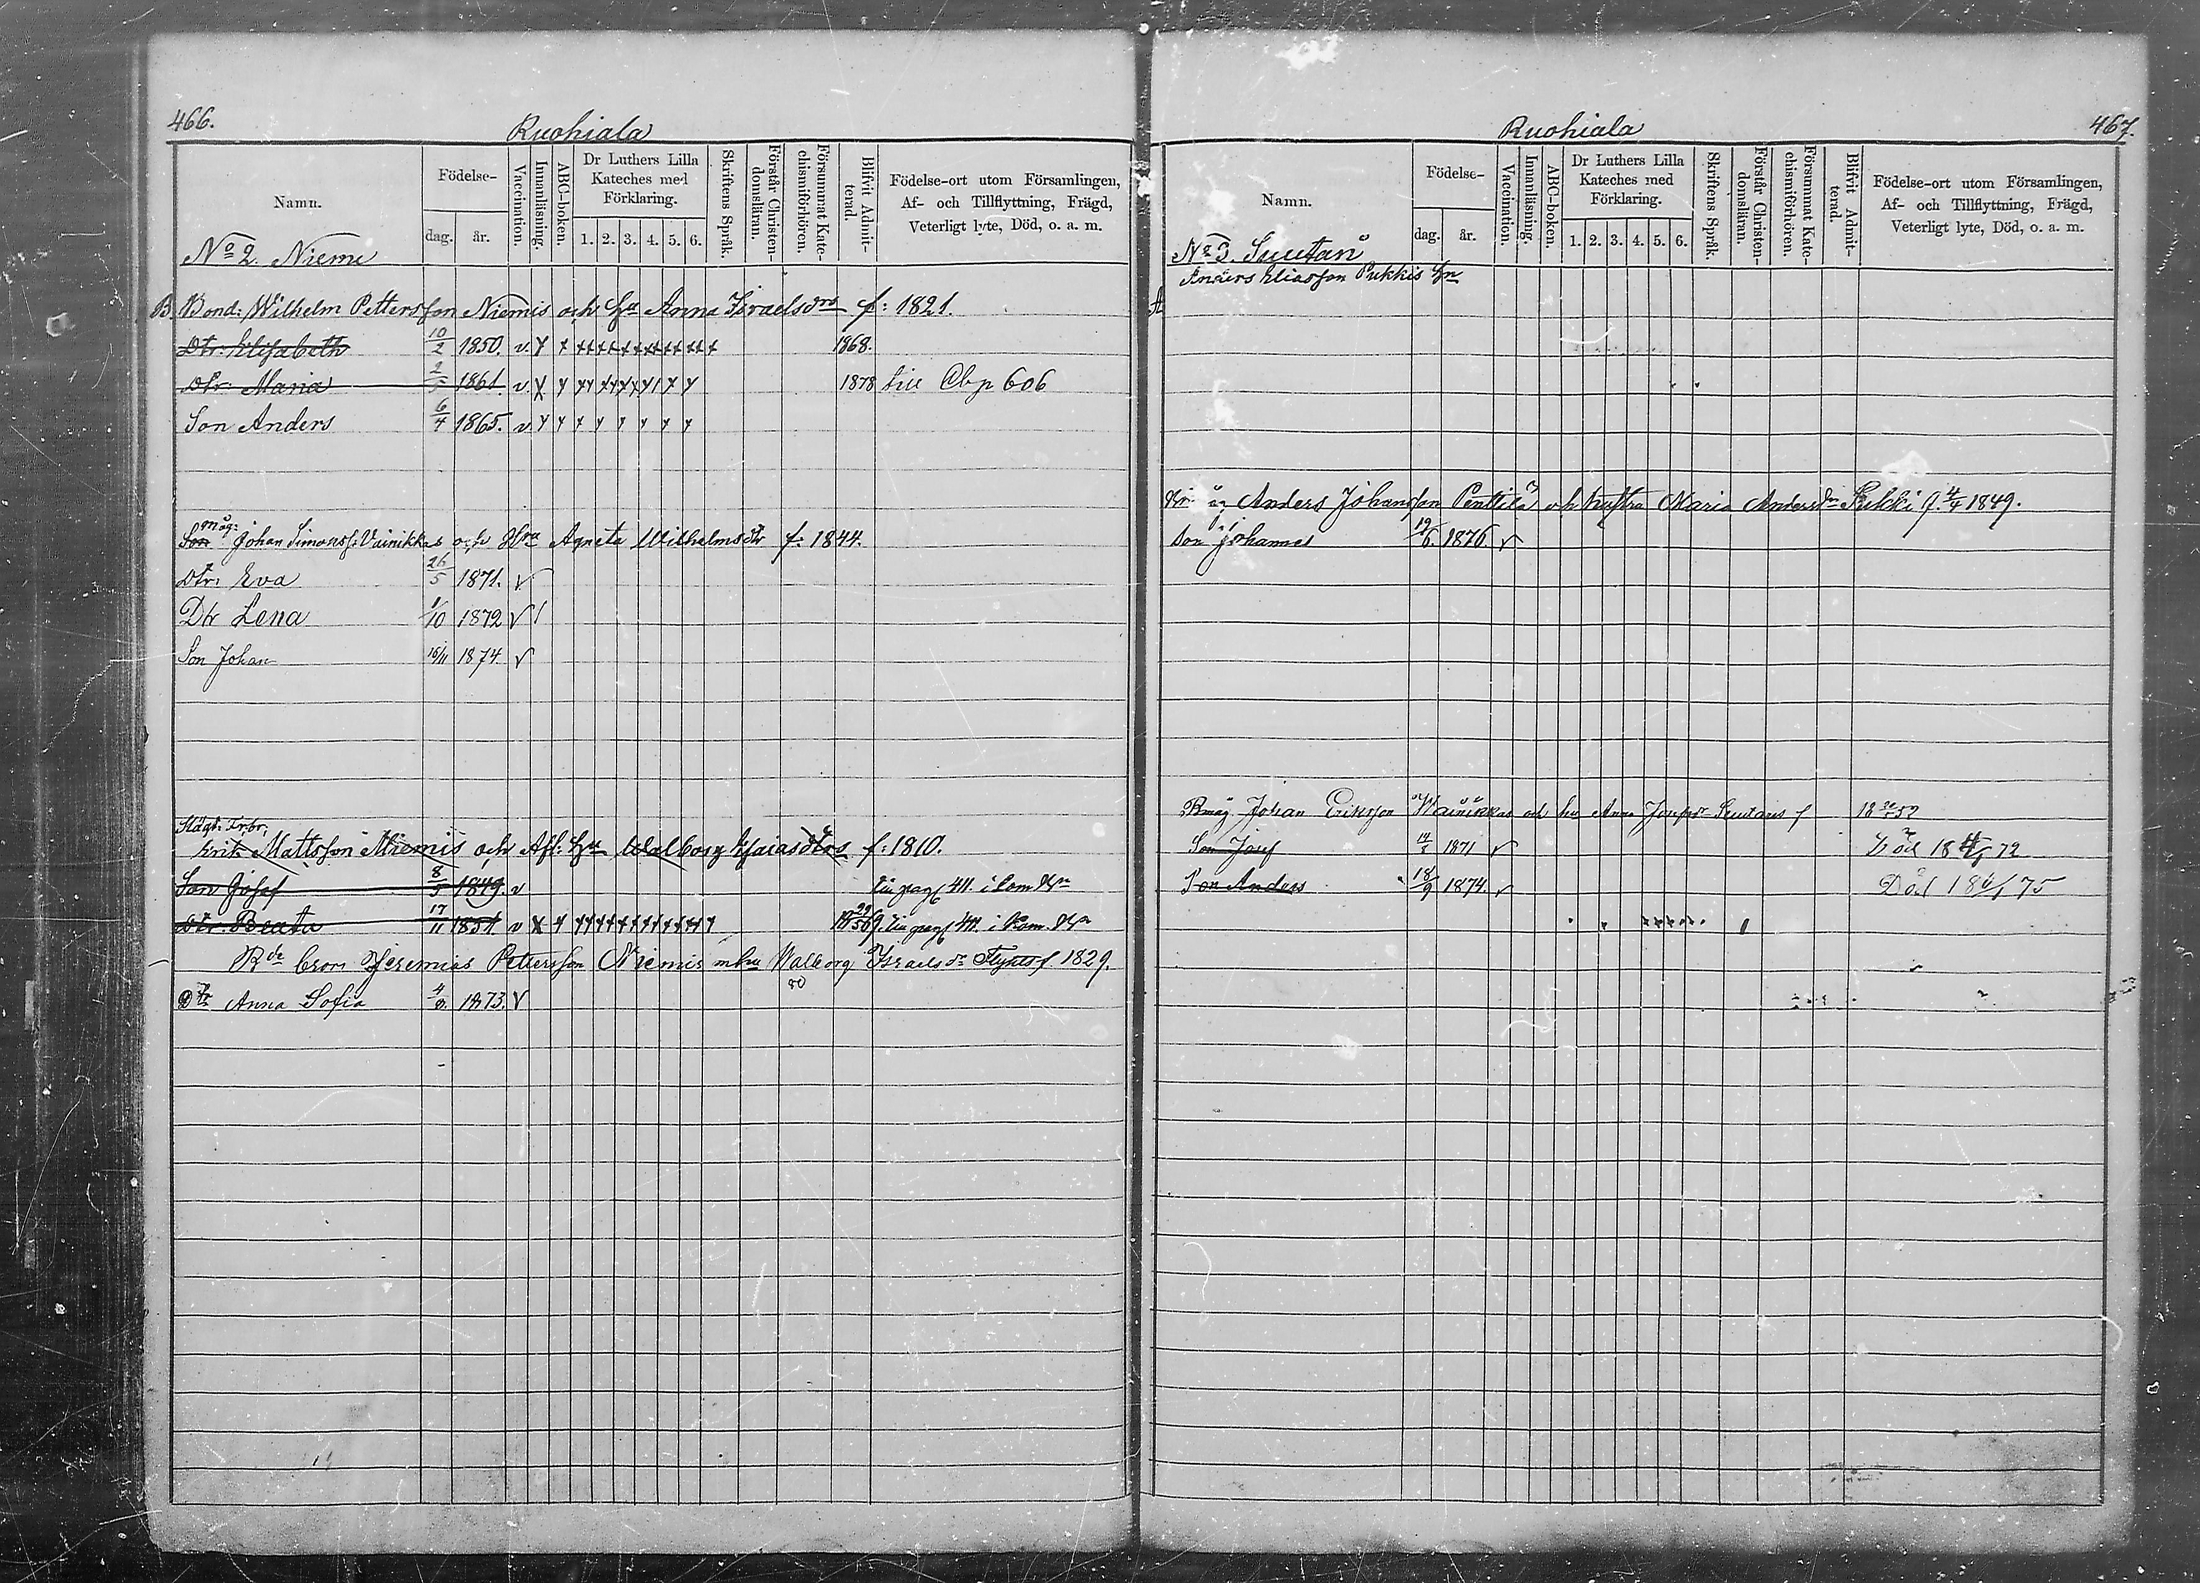 466.
Ruohiala
Namn.
Födelse-
dag.
år.
Vaccination.
Innanläsning.
ABC-boken.
Dr Luthers Lilla
Kateches med
Förklaring.
1. 2. 3. 4. 5. 6.
Skriftens Språk.
Förstår Christen-
domsläran.
Försummat Kate-
chismiförhören.
Blifvit Admit-
terad.
Födelse-ort utom Församlingen,
Af- och Tillflyttning, Frägd,
Veterligt lyte, Död, o. a. m.
No 2. Niemi
B. Bond: Wilhelm Pettersson Niemis och Hu Anna Israelsdrs f: 1821.
Dtr: Elisabeth 10/2 1850. v. 1868.
Dtr: Maria 2/5 1861. v. 1878 till Cbp 606
Son Anders 6/4 1865. v.
Son måg: Johan Simonss: Vainikkas och Hru Agneta Wilhelmsdtr f: 1844.
Dtr: Eva 26/5 1871. v
Dtr Lena 1/10 1872 v
Son Johan 16/11 1874. v
Slägt: Fr:br:
Erik Mattsson Niemis och Afl: Hu Walborg Esaiasdtrs f: 1810.
Son Josef 8/5 1849. v
Dtr: Beata 17/11 1851 v
Bde bror Jeremias Pettersson Niemis m hu Walborg Israelsdr f. 1829.
Dtr Anna Sofia 4/8. 1873. v
467.
Ruohiala
Namn.
Födelse-
dag.
år.
Vaccination.
Innanläsning.
ABC-boken.
Dr Luthers Lilla
Kateches med
Förklaring.
1. 2. 3. 4. 5. 6.
Skriftens Språk.
Förstår Christen-
domsläran.
Försummat Kate-
chismiförhören.
Blifvit Admit-
terad.
Födelse-ort utom Församlingen,
Af- och Tillflyttning, Frägd,
Veterligt lyte, Död, o. a. m.
No 3. Suutari
Anders Eliasson Pukkis
Anders Johansson Penttilä och hustru Maria Andersdr Pukki f. 4/4 1849.
Son Johannes 19/6. 1876. v
Johan Eriksson Wainikkas och hu Anna Josefsdr Suutaris f
Son Josef 1871 v Död 72
Son Anders 18/9 1874. v Död 18 6/1 75